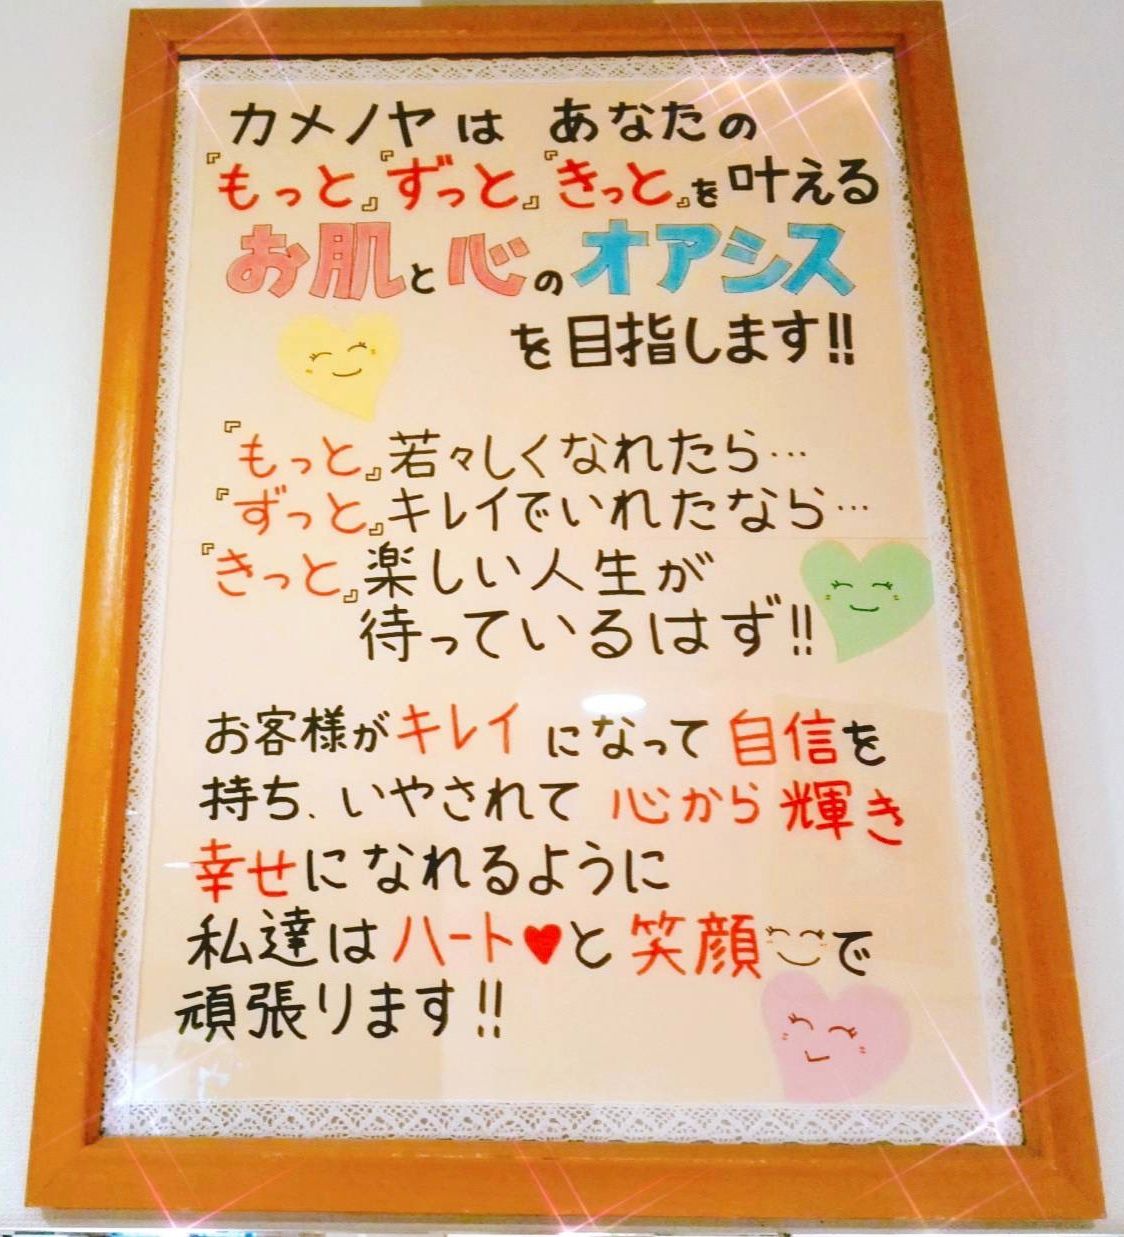 カメノヤは あなたの
『もっと』『ずっと』『きっと』を叶える
お肌と心のオアシス
を目指します!!
『もっと』若々しくなれたら…
『ずっと』キレイでいれたなら…
『きっと』楽しい人生が
待っているはず!!
お客様がキレイになって自信を
持ち、いやされて心から輝き
幸せになれるように
私達はハート♥と笑顔で
頑張ります!!